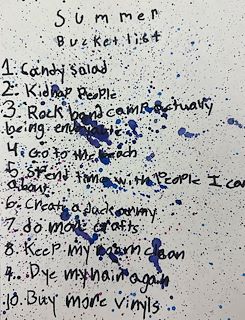 Summer
Bucket list
1. Candy salad
2. Kidnap People
3. Rock band camp actually
being enjoyable
4. Go to the beach
5. Spend time with People I care
about
6. Create a duck army
7 do more crafts
8. Keep my room clean
9. Dye my hair again
10. Buy more vinyls